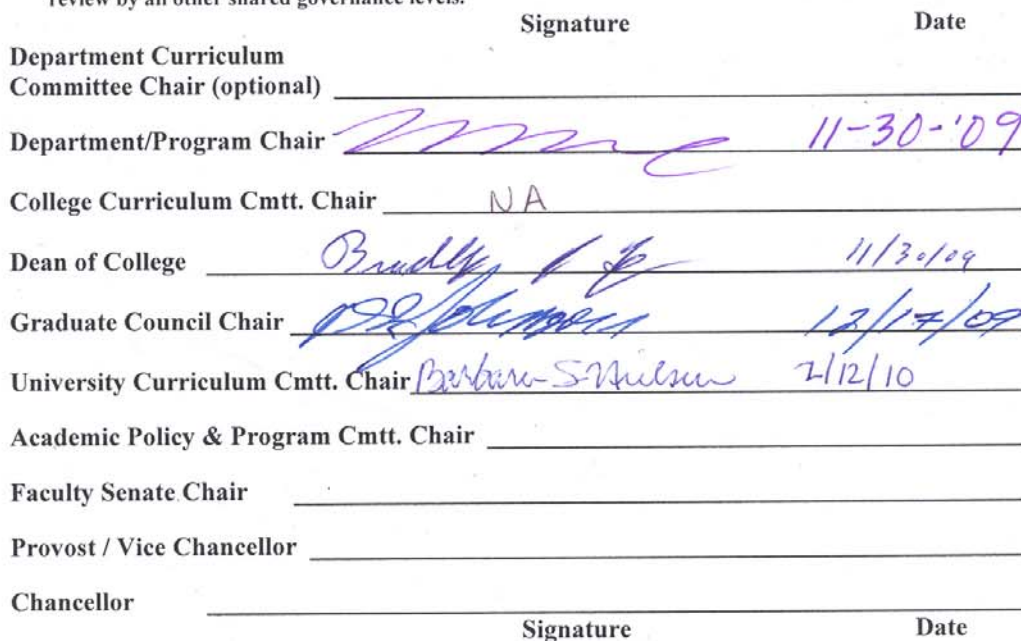 review by all other shared governance levels.
Signature Date
Department Curriculum
Committee Chair (optional)
Department/Program Chair 11-30-'09
College Curriculum Cmtt. Chair NA
Dean of College Bradley 11/30/09
Graduate Council Chair Johnson 12/17/09
University Curriculum Cmtt. Chair Barbara S Nielsen 2/12/10
Academic Policy & Program Cmtt. Chair
Faculty Senate Chair
Provost / Vice Chancellor
Chancellor
Signature Date